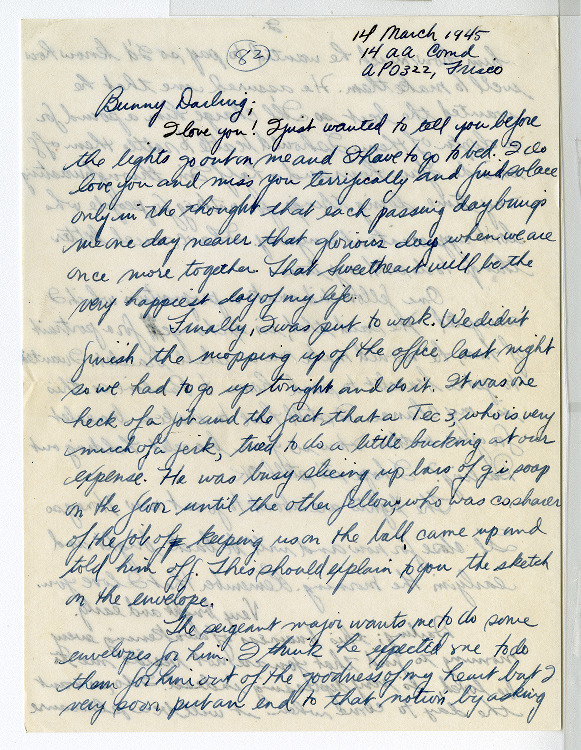 82
14 March 1945
14 AA Comd
APO 322, Frisco
Bunny Darling;
I love you! I just wanted to tell you before
the lights go out in me and I have to go to bed. I do
love you and miss you terrifically and find solace
only in the thought that each passing day brings
me one day nearer that glorious day when we are
once more together. That Sweetheart will be the
very happiest day of my life.
Finally, I was put to work. We didn't
finish the mopping up of the office last night
so we had to go up tonight and do it. It was one
heck of a job and the fact that a Tec 3, who is very
much of a jerk, tried to do a little bucking at our
expense. He was busy slicing up bars of g i soap
on the floor until the other fellow, who was cosharer
of the job of keeping us on the ball, came up and
told him off. This should explain to you the sketch
on the envelope.
The sergeant major wants me to do some
envelopes for him. I think he expected me to do
them for him out of the goodness of my heart but I
very soon put an end to that notion by asking